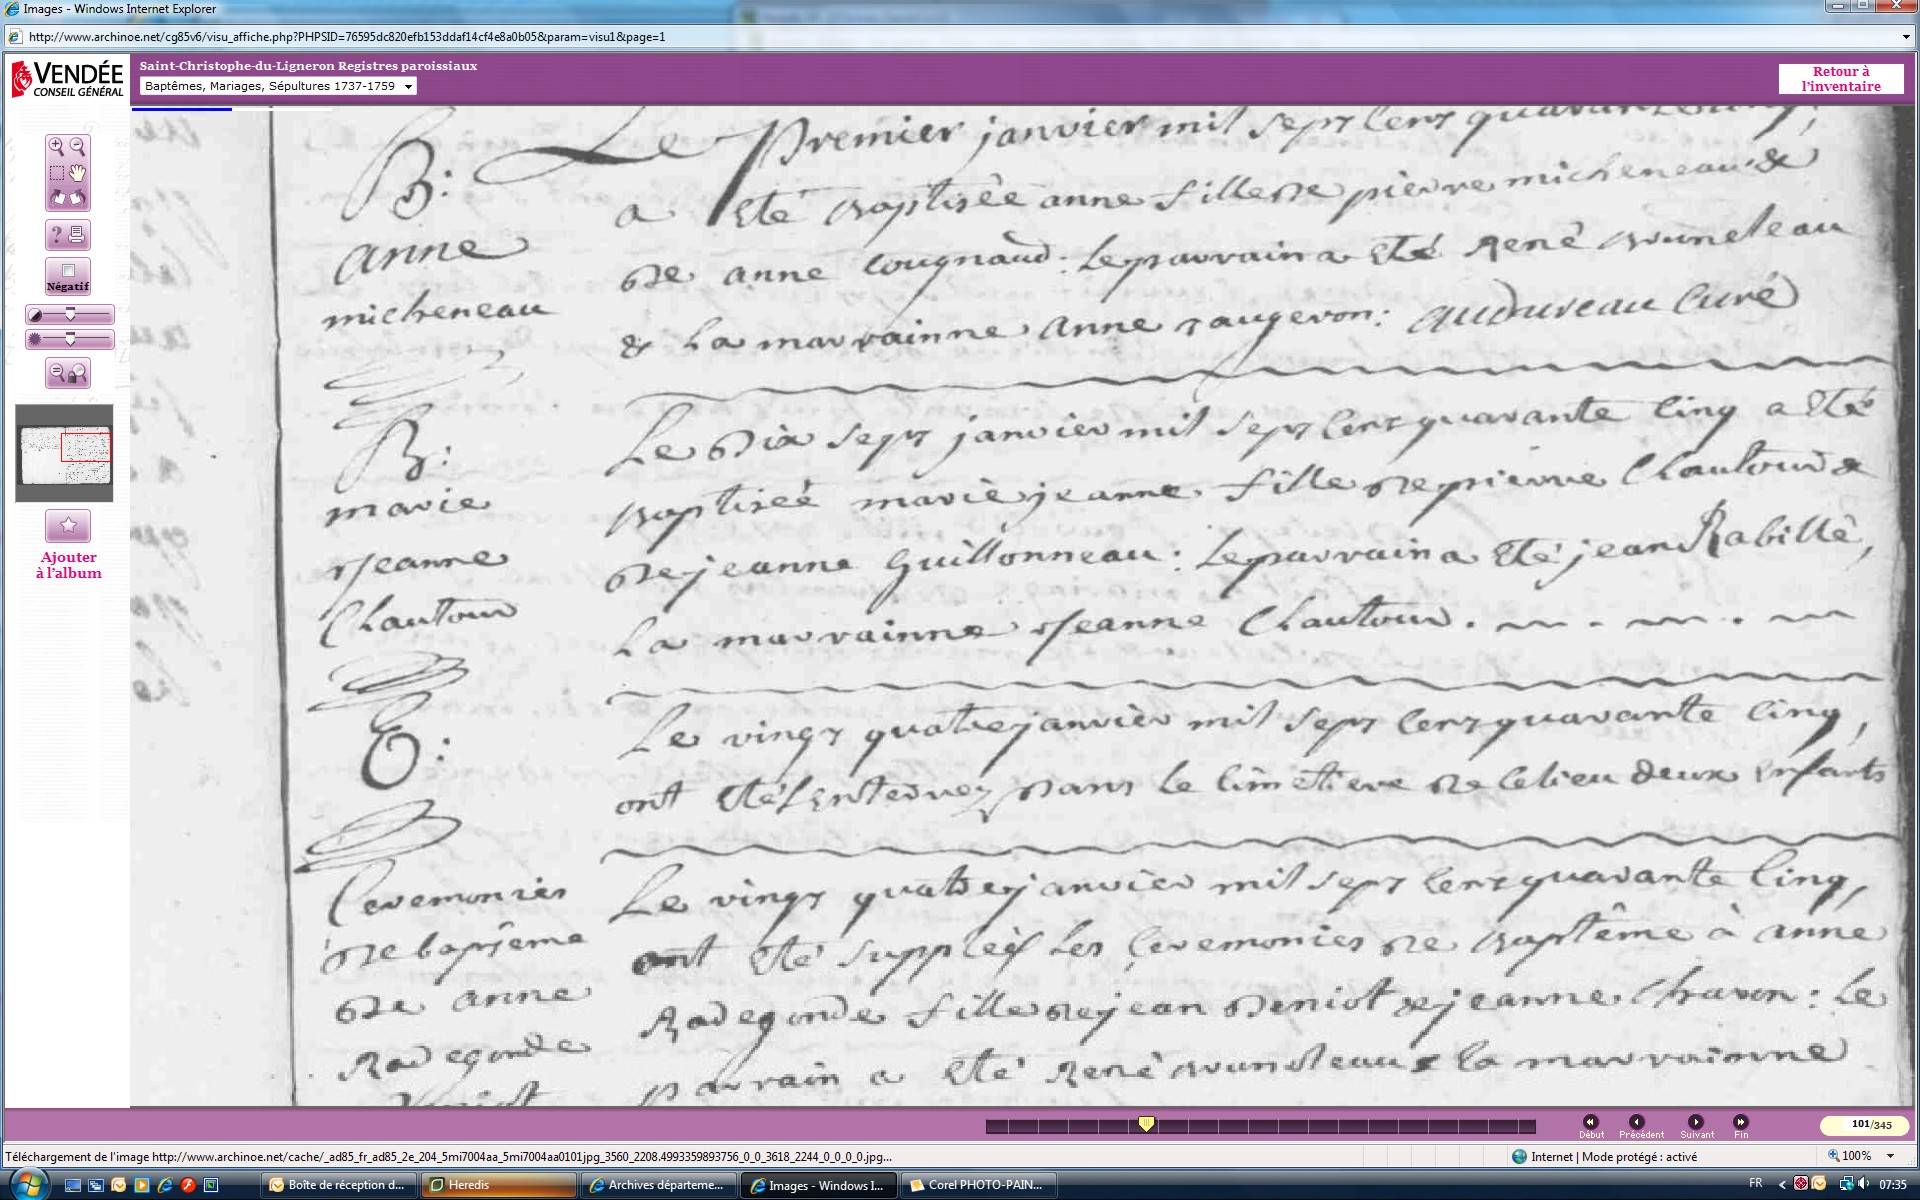 Images - Windows Internet Explorer
http://www.archinoe.net/cg85v6/visu_affiche.php?PHPSID=76595dc820efb153ddaf14cf4e8a0b05&param=visu1&page=1
VENDÉE
CONSEIL GÉNÉRAL
Saint-Christophe-du-Ligneron Registres paroissiaux
Baptêmes, Mariages, Sépultures 1737-1759
Retour à
l'inventaire
Négatif
Ajouter
à l'album
B:
anne
micheneau
Le Premier janvier mil sept cent quarante cinq,
a été baptisée anne fille de pierre micheneau &
de anne Cougnaud: le parrain a été René bruneteau
& La marrainne anne rougeron: audureau Curé
B:
marie
jeanne
Chautour
Le dix sept janvier mil sept cent quarante cinq a été
baptiseé marie jeanne fille de pierre Chautour &
de jeanne Guillonneau: le parrain a été jean Rabillé,
La marrainne jeanne Chautour.
E:
Le vingt quatre janvier mil sept cent quarante cinq,
ont étés Enterrez dans le Cimetiere de ce lieu deux Enfants
Ceremonies
de baptême
de anne
Radegonde
Le vingt quatre janvier mil sept cent quarante cinq,
ont été suppleés les Ceremonies de baptême à anne
Radegonde fille de jean Deniot & jeanne Charon: Le
parrain a été René bruneteau & la marrainne
Début
Précédent
Suivant
Fin
101/345
Téléchargement de l'image http://www.archinoe.net/cache/_ad85_fr_ad85_2e_204_5mi7004aa_5mi7004aa0101jpg_3560_2208.4993359893756_0_0_3618_2244_0_0_0_0.jpg...
Internet | Mode protégé : activé
100%
Boîte de réception d...
Heredis
Archives départeme...
Images - Windows I...
Corel PHOTO-PAIN...
FR
07:35